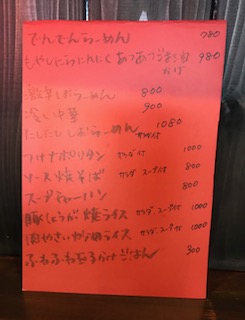 でんでんらーめん 780
もやしにらにんにく あつあつ 980
激辛しおらーめん 800
冷し中華 900
しおらーめん 1080
ナポリタン サラダ付 1000
ソース焼そば サラダ スープ付 800
スープチャーハン 800
豚しょうが焼ライス サラダ、スープ付 1000
肉やさい ライス サラダ、スープ付 1000
ふわふわ玉子 ごはん 300